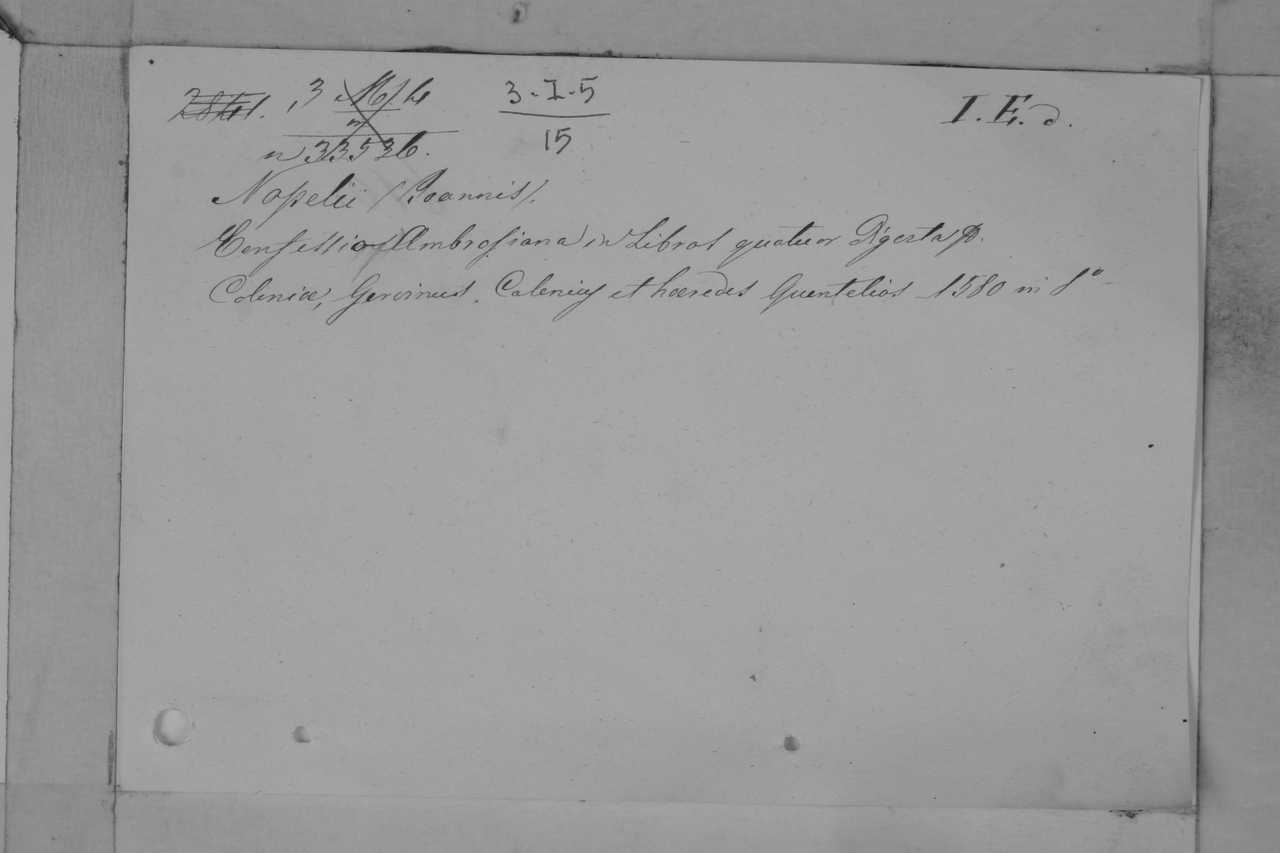 3-I-5
15
I. E. d.
n 33536.
Nopelii (Joannis).
Confessio Ambrosiana in Libros quatuor Digesta
Coloniæ, Gervinus Calenius et hæredes Quentelios 1580 in 8°